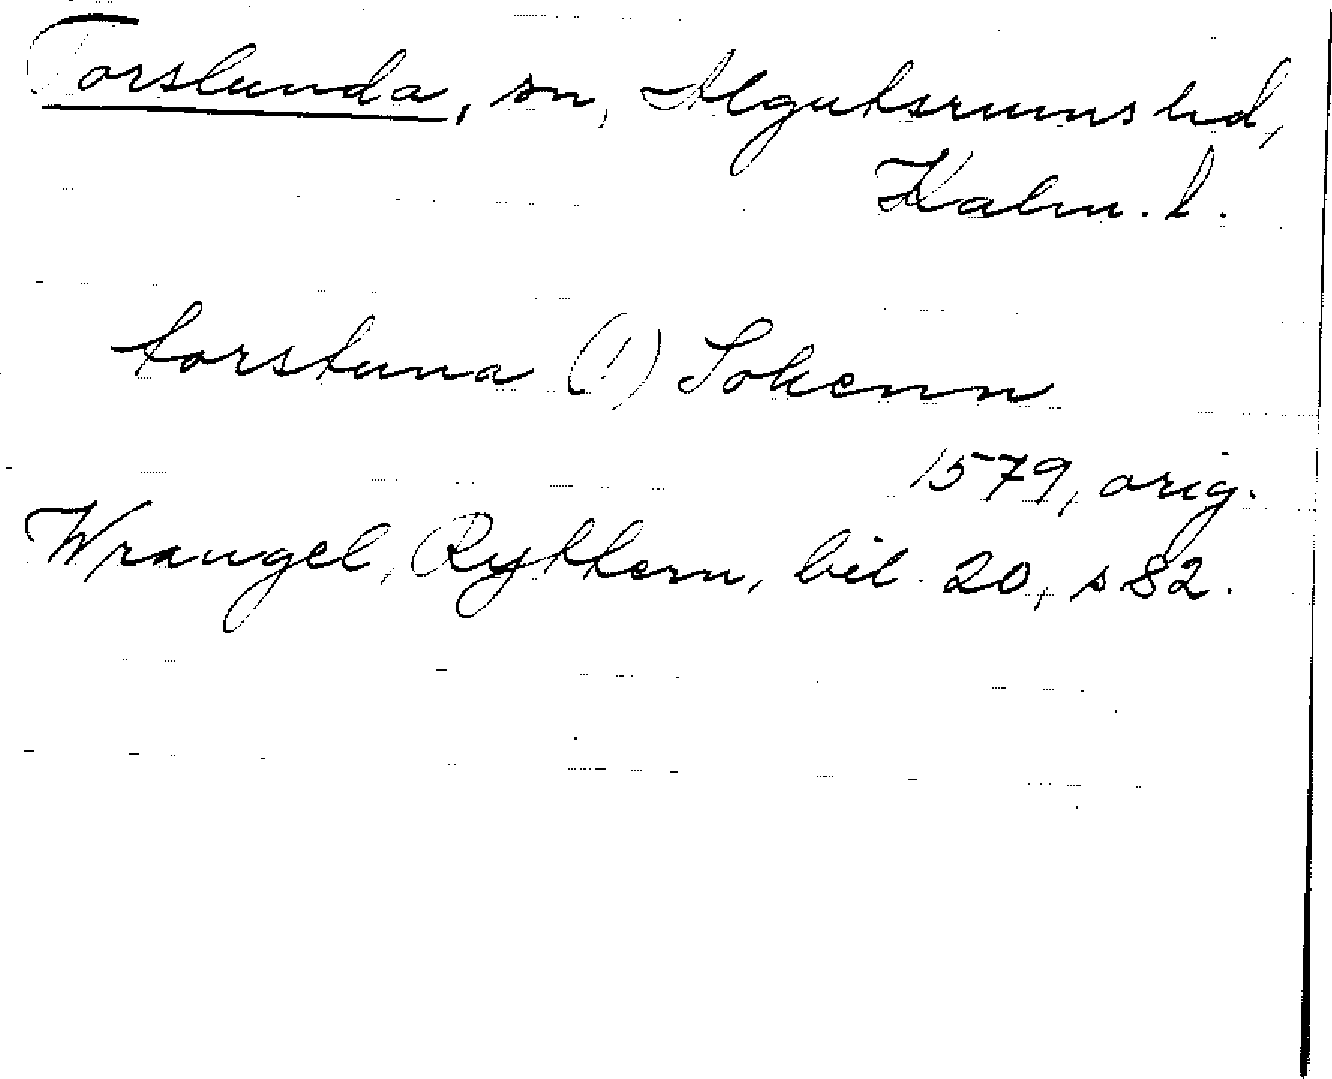 Torslunda, sn, Algutsrums hd,
Kalm. l.
torstuna (!) Sokenn
1579, orig.
Wrangel, Ryttern, bil. 20, s 82.